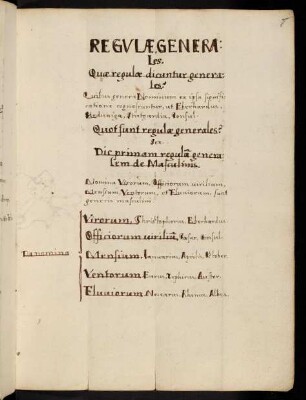 REGVLÆ GENERA:
les.
Quæ regulæ dicuntur genera:
les?
Quibus genera Nominum ex ipsa signifi:
catione cognoscuntur, ut Eberhardus,
Stutgardia, Consul.
Quot sunt regulæ generales?
Sex.
Dic primam regulã genera
lem de Masculinis.
Nomina Virorum, Officiorum virilium,
Mensium, Ventorum, et Fluviorum sunt
generis masculini.
Virorum, Christophorus, Eberhardus.
Officiorum viriliũ, Cæsar, Consul.
Ut nomina
Mensium, Januarius, Aprilis, October.
Ventorum Eurus, Zephirus, Auster.
Fluviorum, Albis.